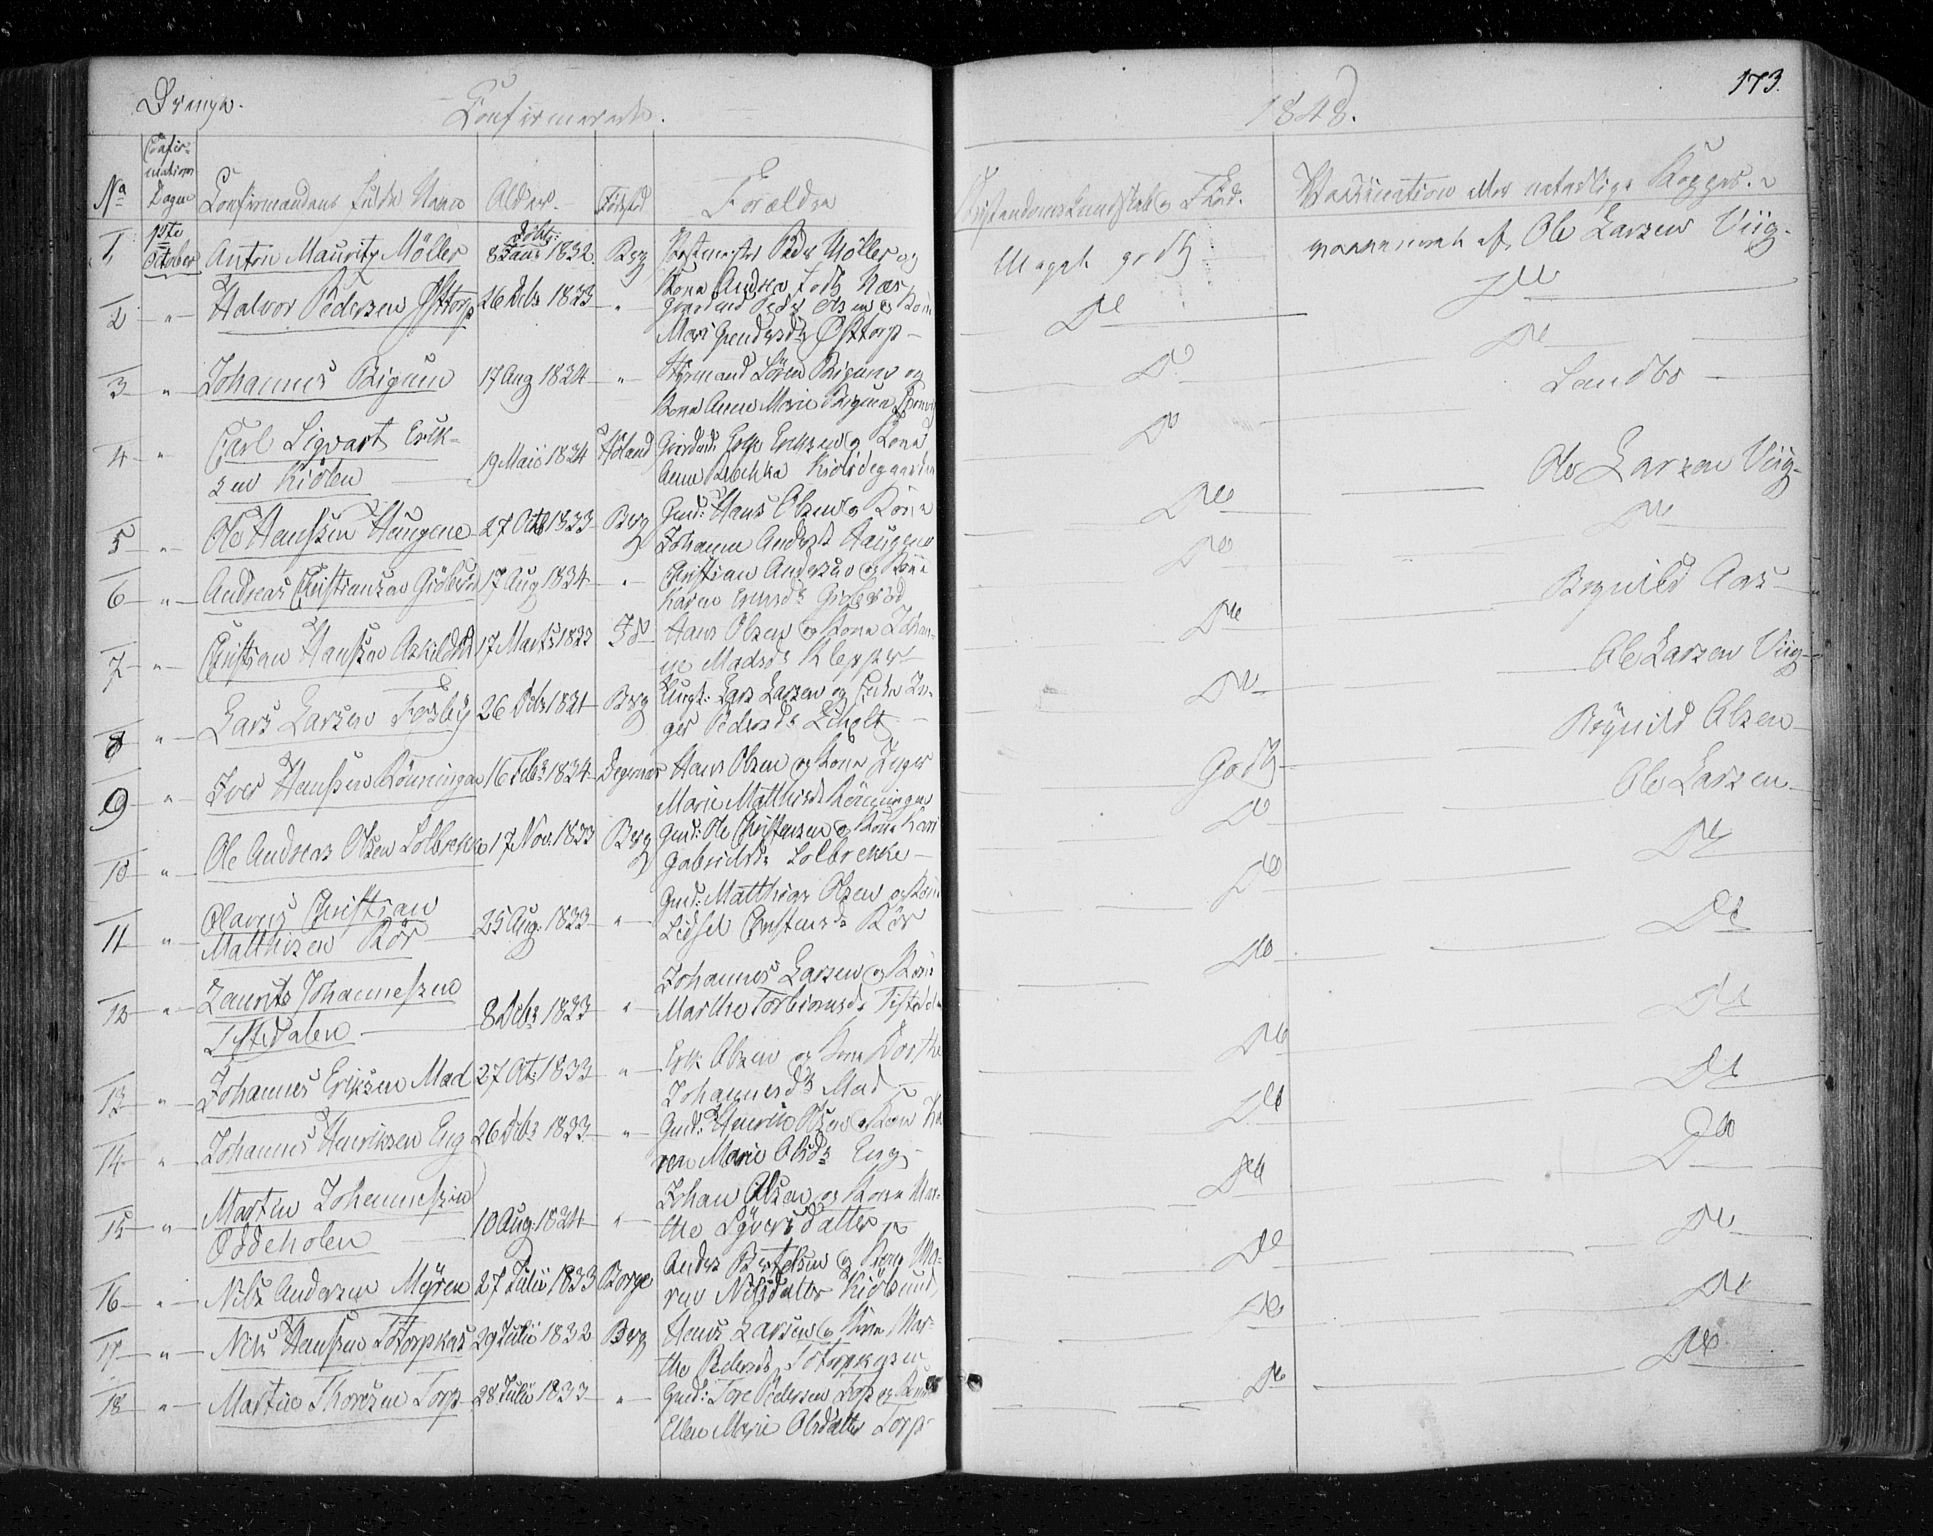 Drenge.
Confirmerede.
1848.
173.
No
Confir-
mations
Dagen
Confirmandens fulde Navn
Alder.
Födsted
Forældre
Christendoms Kundskab og Flid.
Vaccination eller naturlige Kopper.
1, 1ste October Anton Mauritz Möller döbt: 8 1832. Berg Postmester Peder Möller og
Kone Andrea Næs
Meget godt
vaccineret af Ole Larsen Viig.
2 " Halvor Pedersen Østtorp 26 Debr 1833 " Gaardmd Peder Olsen og Kone
Mari Østtorp
Do
Do
3 " Johannes Bignen 17 Aug 1834 " Styrmand Sören Bignen og
Kone Anne Marie Bignen
Do
Do
Landbo
4 " Carl Sigvart Erik-
sen Kiölen 19 Maii 1834 Höland Gaardmd: Erik Eriksen og Kone
Anne
Do
Ole Larsen Viig
5 " Ole Hanssen Haugene 27 Octb 1833 Berg Gmd: Hans Olsen og Kone
Johanne Andersd Haugene
Do
Do
6 " Andreas Christiansen 17 Aug 1834 " Christian Andersen og Kone
Karen
Do
Aas
7 " Christian Hanssen 17 Marts 1833 Id Hans Olsen og Kone Johan-
ne Madsd Klepper
Do
Ole Larsen Viig
8 " Lars Larsen Fosby 26 Debr 1831 Berg Ungk: Lars Larsen og In-
ger Pedersd
Do
Olsen
9 " Iver Hanssen Rönningen 16 Febr 1834 Degernes Hans Olsen og Kone Inger
Marie Matthisd Rönningen
Godt
Ole Larsen
10 " Ole Andreas Olsen Solbrekke 17 Nov. 1833 Berg Gmd: Ole Christensen og Kone Kari
Gabrielsd: Solbrekke
Do
Do
11 " Olaves Christian
Matthisen Rör 25 Aug. 1833 " Gmd: Matthias Olsen og Kone
Sidsel Christensd: Rör
Do
Do
12 " Laurits Johannessen
Tistedalen 8 Debr 1833 " Johannes Larsen og Kone
Marthe Torbiornsd: Tistedalen
Do
Do
13 " Johannes Eriksen Mad 27 Otb 1833 " Erik Olsen og Kone Dorthe
Johannesd Mad
Do
Do
14 " Johannes Henriksen Eng 26 Debr 1833 " Gmd: Henrik Olsen og Kone Ka-
ren Marie Olsd: Eng
Do
Do
15 " Martin Johannessen
Oddeholen 10 Aug. 1834 " Johan Olsen og Kone Mar-
the Syversdatter
Do
Do
16 " Nils Andersen Myren 27 Julii 1833 Borge Anders Bertelsen og Kone Ma-
ren Nilsdatter Kiölsund
Do
Do
17 " Nils Hanssen Totorpkas 29 Julii 1832 Berg Hans Larsen og Kone Mar-
the Pedersd: Totorpkasen
Do
Do
18 " Martin Thoresen Torp 28 Julii 1833 " Gmd: Tore Pedersen Torp og Kone
Ellen Marie Olsdatter Torp
Do
Do